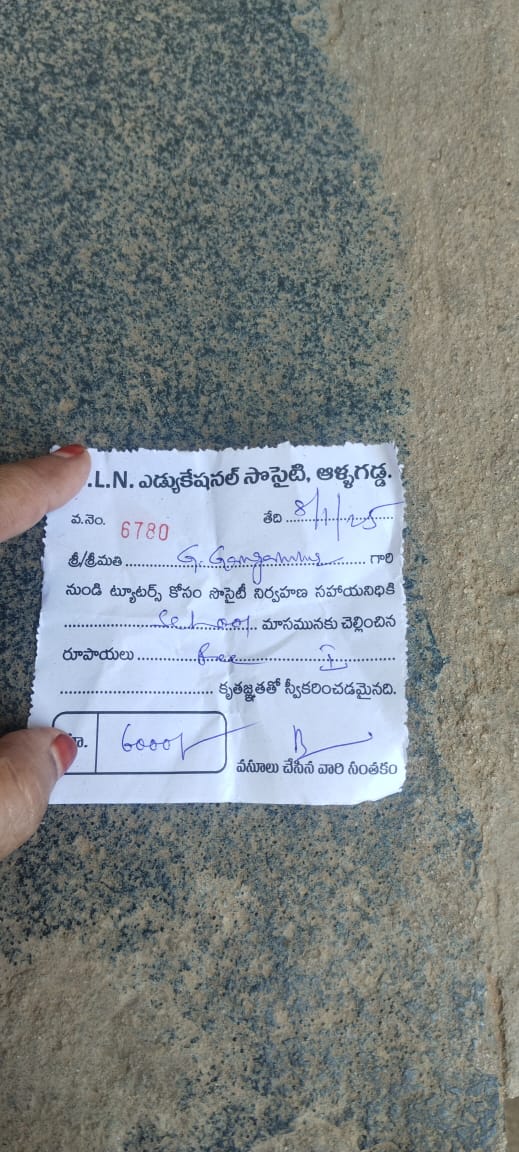 .L.N. ఎడ్యుకేషనల్ సొసైటి, ఆళ్ళగడ్డ.
వ.నెం. 6780 తేది 8/1/25
శ్రీ/శ్రీమతి G. Gangamma గారి
నుండి ట్యూటర్స్ కోసం సొసైటీ నిర్వహణ సహాయనిధికి
School మాసమునకు చెల్లించిన
రూపాయలు Fee I
కృతజ్ఞతతో స్వీకరించడమైనది.
రూ. 6000/-
వసూలు చేసిన వారి సంతకం